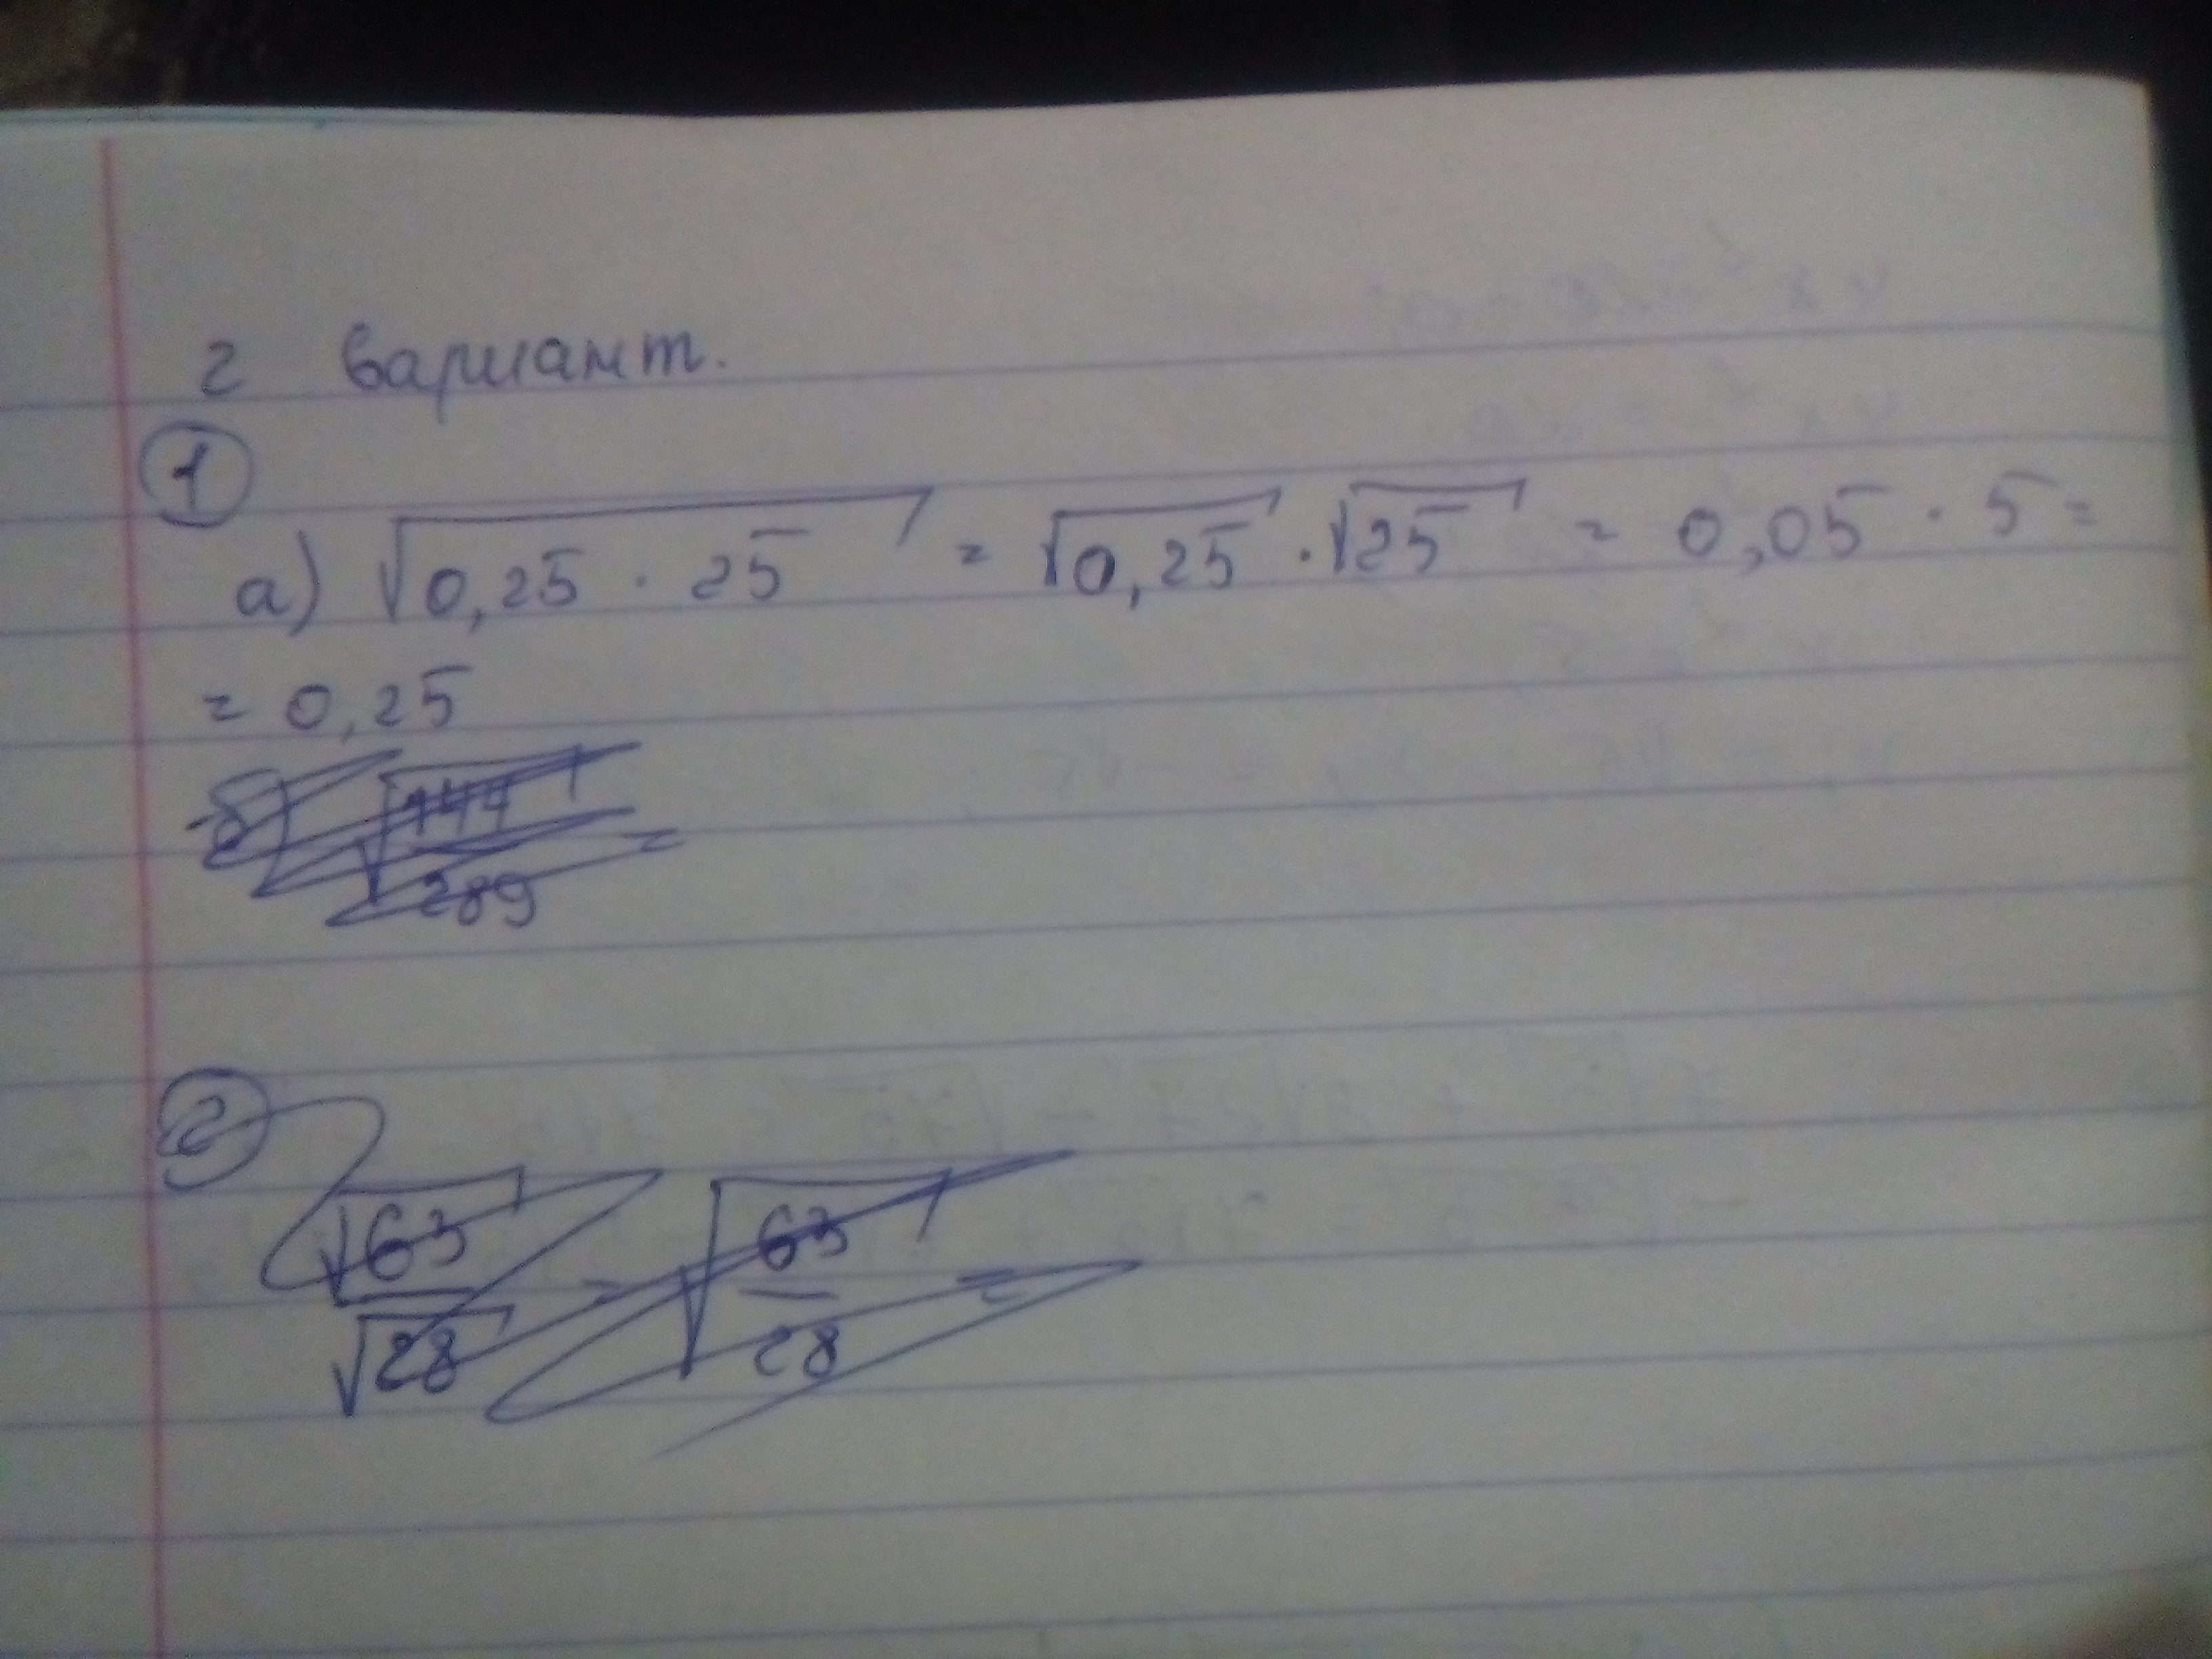 2 вариант.
1
а) √0,25 · 25 = √0,25 · √25 = 0,05 · 5 =
= 0,25
б) √144/289 =
2
√63/√28 = √63/28 =